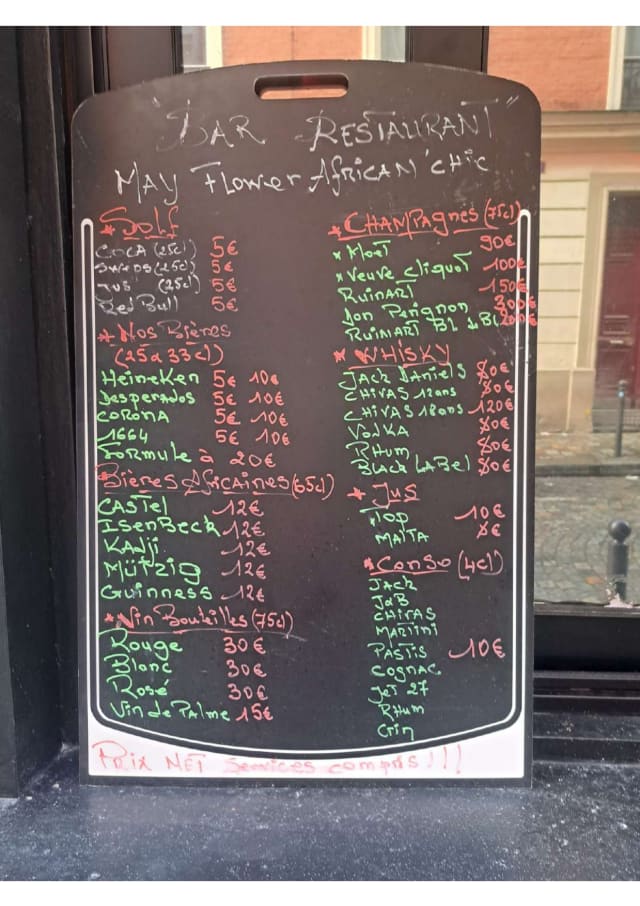 "BAR RESTAURANT"
MAY FLOWER AFRICAN'CHIC
* SOLF
COCA (25cl) 5€
SWEPS (25cl) 5€
JUS (25cl) 5€
Red Bull 5€
* Nos Bières
(25 à 33cl)
Heineken 5€ 10€
Desperados 5€ 10€
CORONA 5€ 10€
1664 5€ 10€
FORMULE à 20€
Bières Africaines (65cl)
CASTEL 12€
IsenBeck 12€
KADJI 12€
Mützig 12€
Guinness 12€
* Vin Bouteilles (75cl)
Rouge 30€
Blanc 30€
Rosé 30€
Vin de Palme 15€
* CHAMPagnes (75cl)
* Moet 90€
* Veuve Cliquot 100€
RuinART 150€
Don Perignon 300€
RUINART BL d BL 200€
* WHISKY
JACK DANIELS 80€
CHIVAS 12ans 80€
CHIVAS 18ans 120€
VODKA 80€
RHUM 80€
BLACK LABEL 80€
* JUS
TOP 10€
MALTA
* Conso (4cl)
JACK
J&B
CHIVAS
MARTINI
PASTIS 10€
COGNAC
JET 27
RHUM
PRIX NET Services compris!!!